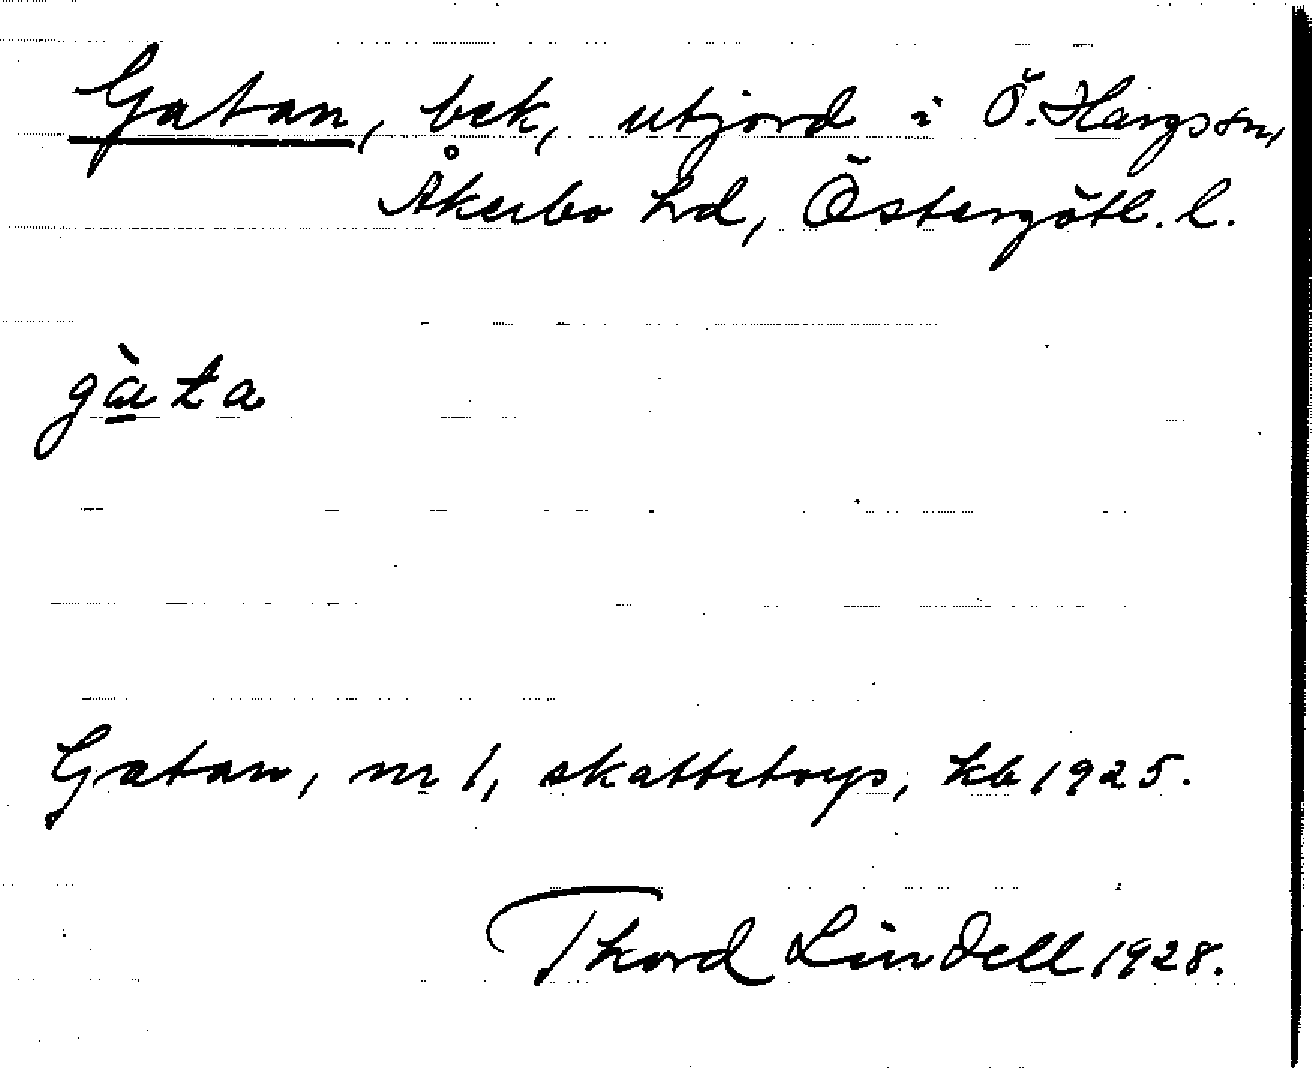 Gatan, bek, utjord i Ö. Hargs sn,
Åkerbo hd, Östergötl. l.
gàta
Gatan, nr 1, skattetorp, kb 1925.
Thord Lindell 1928.